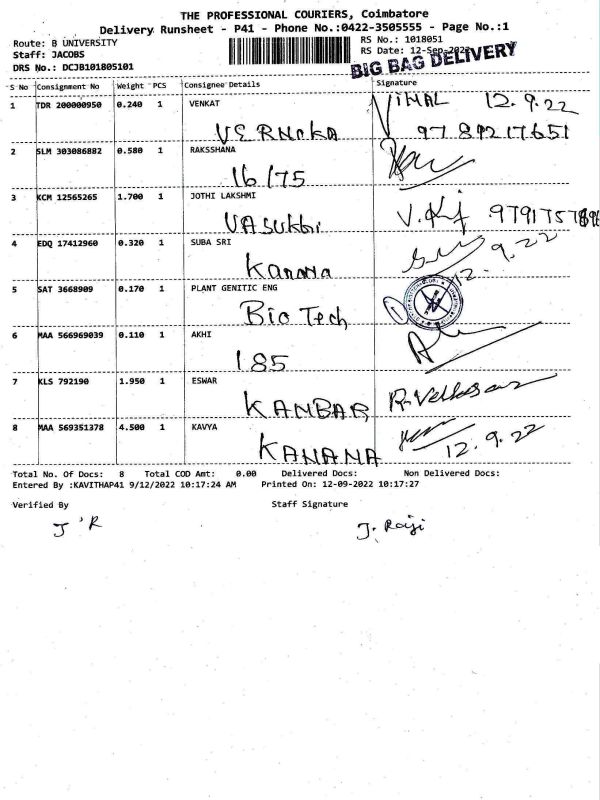 THE PROFESSIONAL COURIERS, Coimbatore
Delivery Runsheet - P41 - Phone No.:0422-3505555 - Page No.:1
Route: B UNIVERSITY RS No.: 1018051
Staff: JACOBS RS Date: 12-Sep-2022
DRS No.: DCJB101805101 BIG BAG DELIVERY
S No Consignment No Weight PCS Consignee Details Signature
1 TDR 200000950 0.240 1 VENKAT VIMAL 12.9.22
VERNOKA 9789217651
2 SLM 303086882 0.580 1 RAKSSHANA
16/75
3 KCM 12565265 1.700 1 JOTHI LAKSHMI
VASUKHI
4 EDQ 17412960 0.320 1 SUBA SRI
Kanana 12.9.22
5 SAT 3668909 0.170 1 PLANT GENITIC ENG
Bio Tech
6 MAA 566969039 0.110 1 AKHI
185
7 KLS 792190 1.950 1 ESWAR
KAMBAR
8 MAA 569351378 4.500 1 KAVYA
KANANA 12.9.22
Total No. Of Docs: 8 Total COD Amt: 0.00 Delivered Docs: Non Delivered Docs:
Entered By :KAVITHAP41 9/12/2022 10:17:24 AM Printed On: 12-09-2022 10:17:27
Verified By Staff Signature
J. Raji